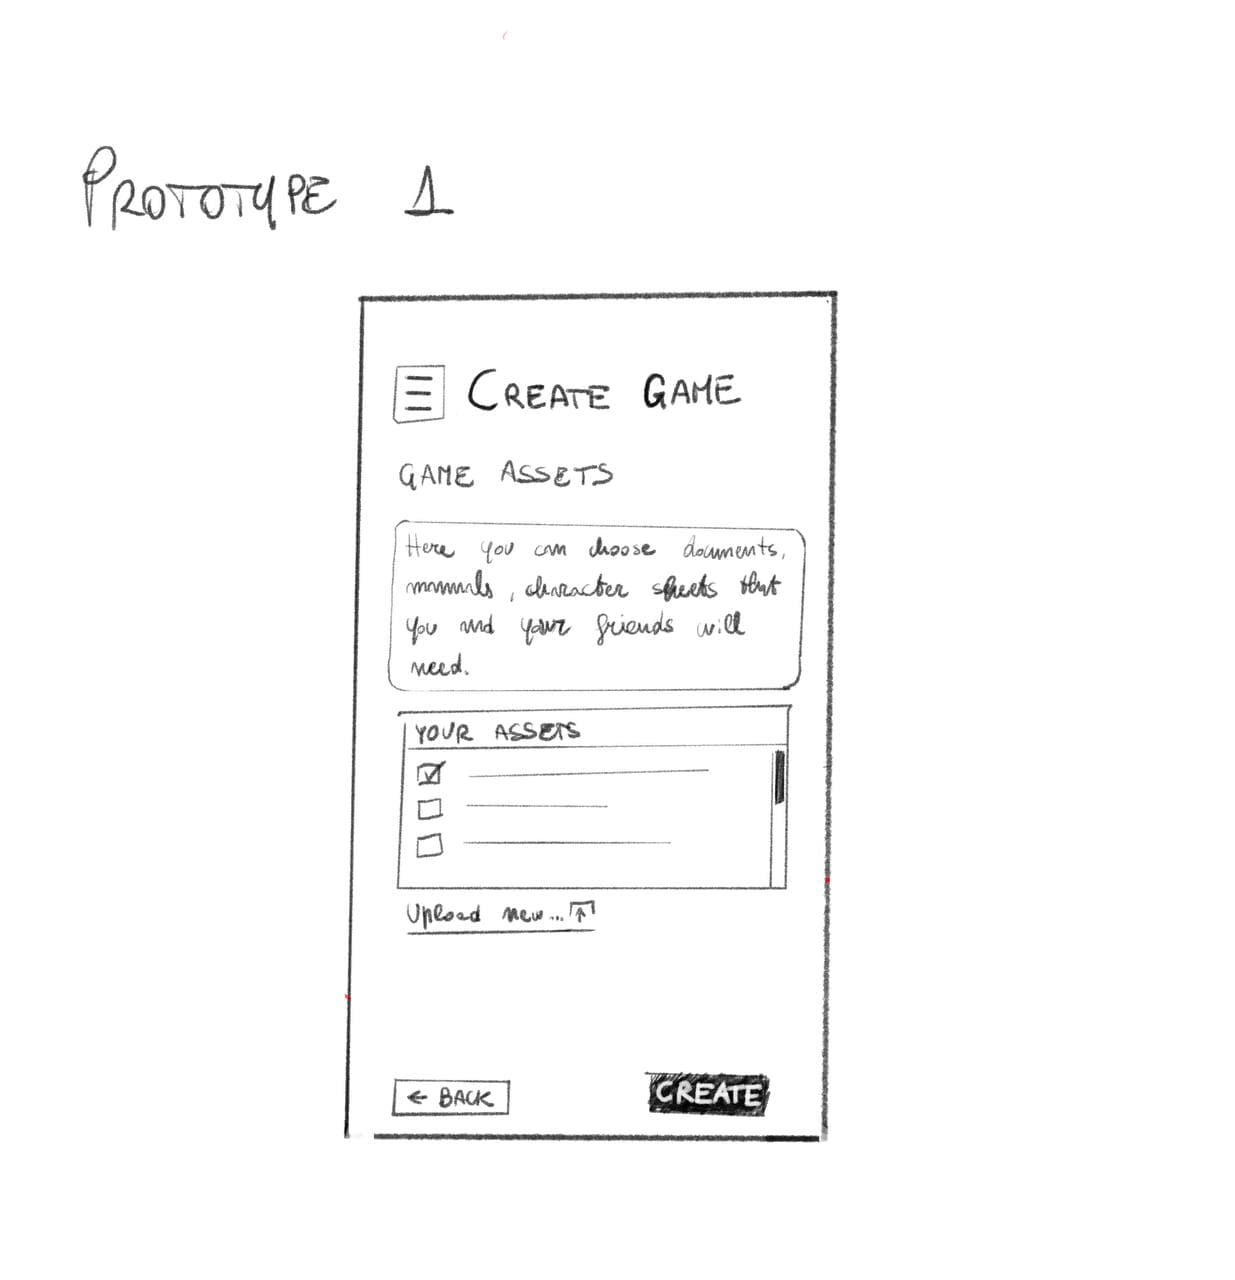 PROTOTYPE 1
CREATE GAME
GAME ASSETS
Here you can choose documents,
manuals, character sheets that
you and your friends will
need.
YOUR ASSETS
Upload new...
← BACK
CREATE